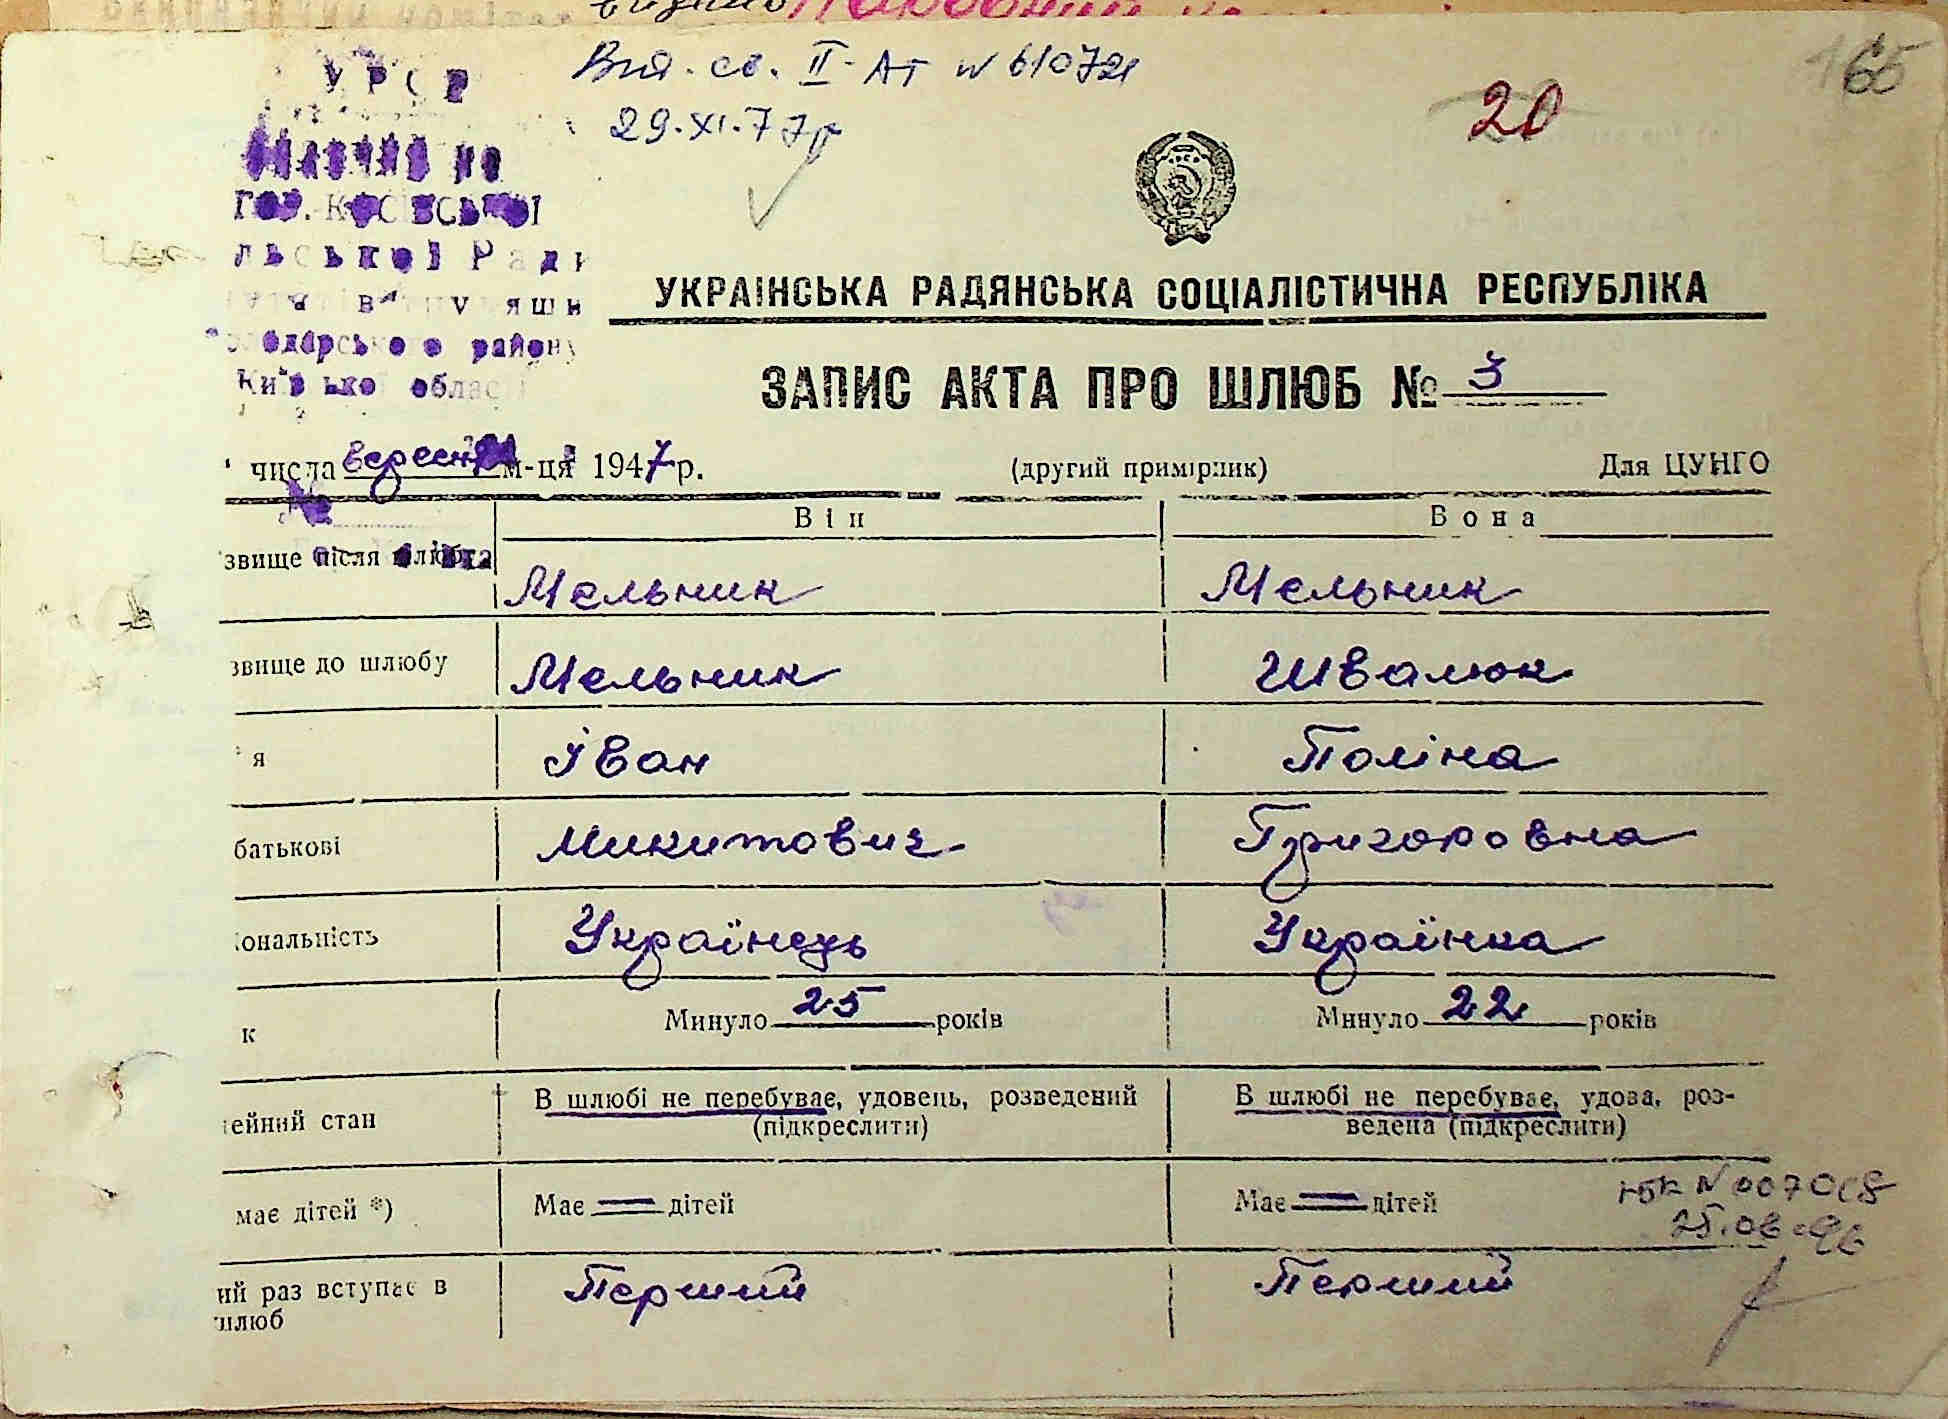 УРСР
Вид. св. II-АТ № 610721
29.XI.77р
20
65
Ради
району
УКРАЇНСЬКА РАДЯНСЬКА СОЦІАЛІСТИЧНА РЕСПУБЛІКА
ЗАПИС АКТА ПРО ШЛЮБ № 3
числа вересня м-ця 1947 р. (другий примірник) Для ЦУНГО
Він Вона
звище після шлюбу Мельник Мельник
звище до шлюбу Мельник Швалюк
я Іван Поліна
батькові Микитович Григоровна
іональність Українець Українка
к Минуло 25 років Минуло 22 років
ейний стан В шлюбі не перебуває, удовець, розведений (підкреслити) В шлюбі не перебуває, удова, роз-
ведена (підкреслити)
має дітей *) Має — дітей Має — дітей
25.06.96
ий раз вступає в Перший Перший
шлюб